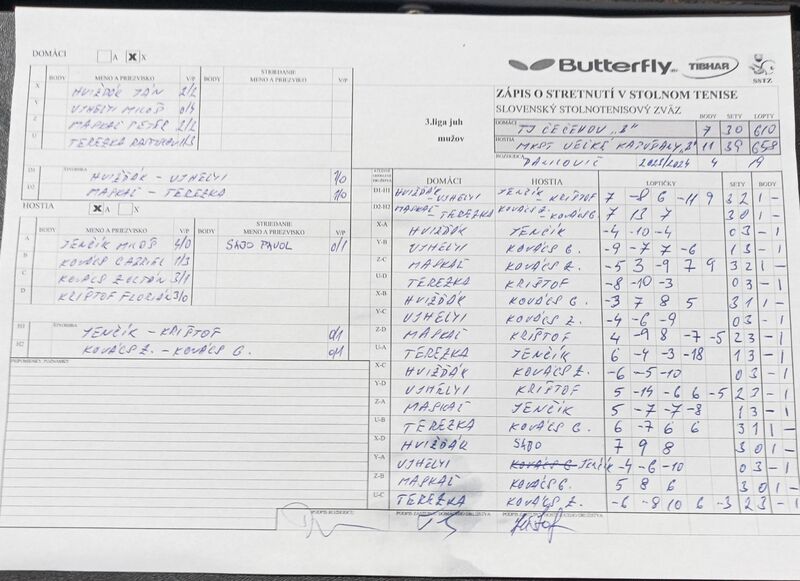 DOMÁCI A X X
BODY MENO A PRIEZVISKO V/P BODY STRIEDANIE MENO A PRIEZVISKO V/P
X HVIŽĎÁK JÁN 2/2
Y UJHELYI MILOŠ 0/4
Z MASKAĽ PETER 2/2
U TEREZKA 1/3
D1 ŠTVORHRA HVIŽĎÁK - UJHELYI 1/0
D2 MASKAĽ - TEREZKA 1/0
HOSTIA X A X
BODY MENO A PRIEZVISKO V/P BODY STRIEDANIE MENO A PRIEZVISKO V/P
A JENČÍK MILOŠ 4/0 SAJO PAVOL 0/1
B KOVÁCS GABRIEL 1/3
C KOVÁCS ZOLTÁN 3/1
D KRIŠTOF FLORIÁN 3/0
H1 ŠTVORHRA JENČÍK - KRIŠTOF 0/1
H2 KOVÁCS Z. - KOVÁCS G. 0/1
PRIPOMIENKY, POZNÁMKY
Butterfly TIBHAR SSTZ
3.liga juh
mužov
ZÁPIS O STRETNUTÍ V STOLNOM TENISE
SLOVENSKÝ STOLNOTENISOVÝ ZVÄZ
BODY SETY LOPTY
DOMÁCI TJ ČEČEHOV "B" 7 30 610
HOSTIA MKST VEĽKÉ KAPUŠANY "B" 11 39 658
ROZHODCA 2023/2024 4 19
DOMÁCI HOSTIA LOPTIČKY SETY BODY
D1-H1 HVIŽĎÁK - UJHELYI JENČÍK - KRIŠTOF 7 -8 6 -11 9 3 2 1 -
D2-H2 MASKAĽ - TEREZKA KOVÁCS Z. - KOVÁCS G. 7 13 7 3 0 1 -
X-A HVIŽĎÁK JENČÍK -4 -10 -4 0 3 - 1
Y-B UJHELYI KOVÁCS G. -9 -7 7 -6 1 3 - 1
Z-C MASKAĽ KOVÁCS Z. -5 3 -9 7 9 3 2 1 -
U-D TEREZKA KRIŠTOF -8 -10 -3 0 3 - 1
X-B HVIŽĎÁK KOVÁCS G. -3 7 8 5 3 1 1 -
Y-C UJHELYI KOVÁCS Z. -4 -6 -9 0 3 - 1
Z-D MASKAĽ KRIŠTOF 4 -9 8 -7 -5 2 3 - 1
U-A TEREZKA JENČÍK 6 -4 -3 -18 1 3 - 1
X-C HVIŽĎÁK KOVÁCS Z. -6 -5 -10 0 3 - 1
Y-D UJHELYI KRIŠTOF 5 -14 -6 6 -5 2 3 - 1
Z-A MASKAĽ JENČÍK 5 -7 -7 -8 1 3 - 1
U-B TEREZKA KOVÁCS G. 6 -7 6 6 3 1 1 -
X-D HVIŽĎÁK SAJO 7 9 8 3 0 1 -
Y-A UJHELYI KOVÁCS G JENČÍK -4 -6 -10 0 3 - 1
Z-B MASKAĽ KOVÁCS G. 5 8 6 3 0 1 -
U-C TEREZKA KOVÁCS Z. -6 -8 10 6 -3 2 3 - 1
PODPIS ROZHODCU PODPIS ZÁSTUPCU DOMÁCEHO DRUŽSTVA